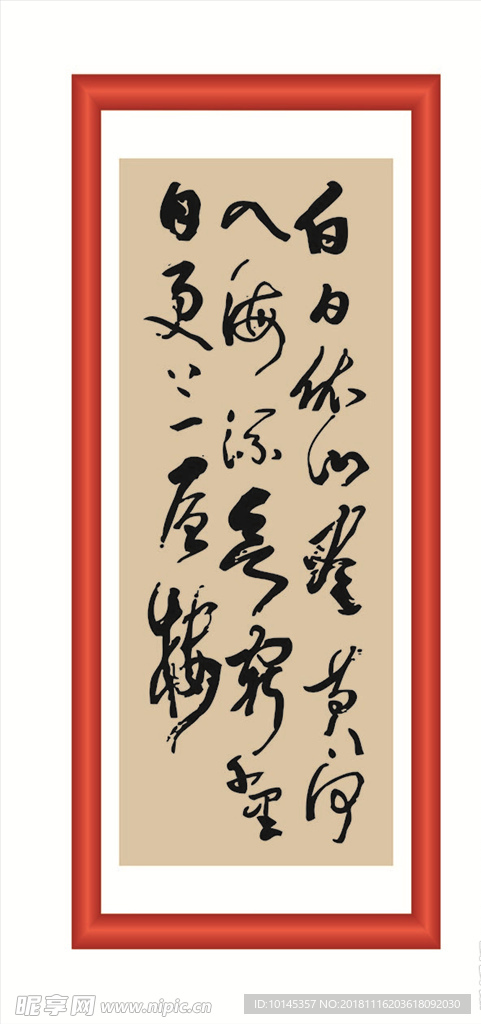 白日依山盡黄河
入海流欲窮千里
目更上一层楼
昵享网 www.nipic.cn
ID:10145357 NO:20181116203618092030